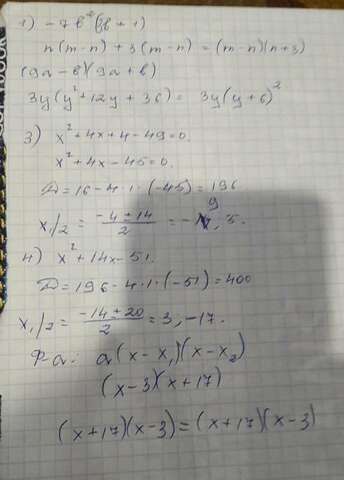 1) -7b²(3b + 1)
n(m-n) + 3(m-n) = (m-n)(n+3)
(9a - b)(9a + b)
3y(y² + 12y + 36) = 3y(y + 6)²
3) x² + 4x + 4 - 49 = 0.
x² + 4x - 45 = 0.
D = 16 - 4 · 1 · (-45) = 196
x₁/₂ = (-4 ± 14)/2 = -9, 5.
4) x² + 14x - 51.
D = 196 - 4 · 1 · (-51) = 400
x₁/₂ = (-14 ± 20)/2 = 3, -17.
Ф-ла: a(x - x₁)(x - x₂)
(x - 3)(x + 17)
(x + 17)(x - 3) = (x + 17)(x - 3)